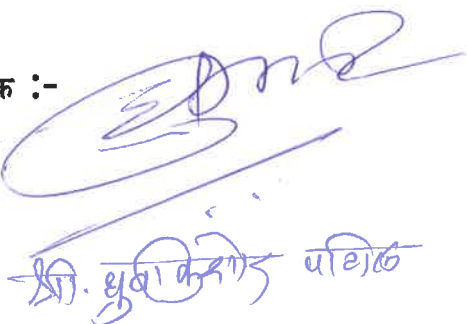 क :-
श्री. ध्रुवकिशोर पाटील